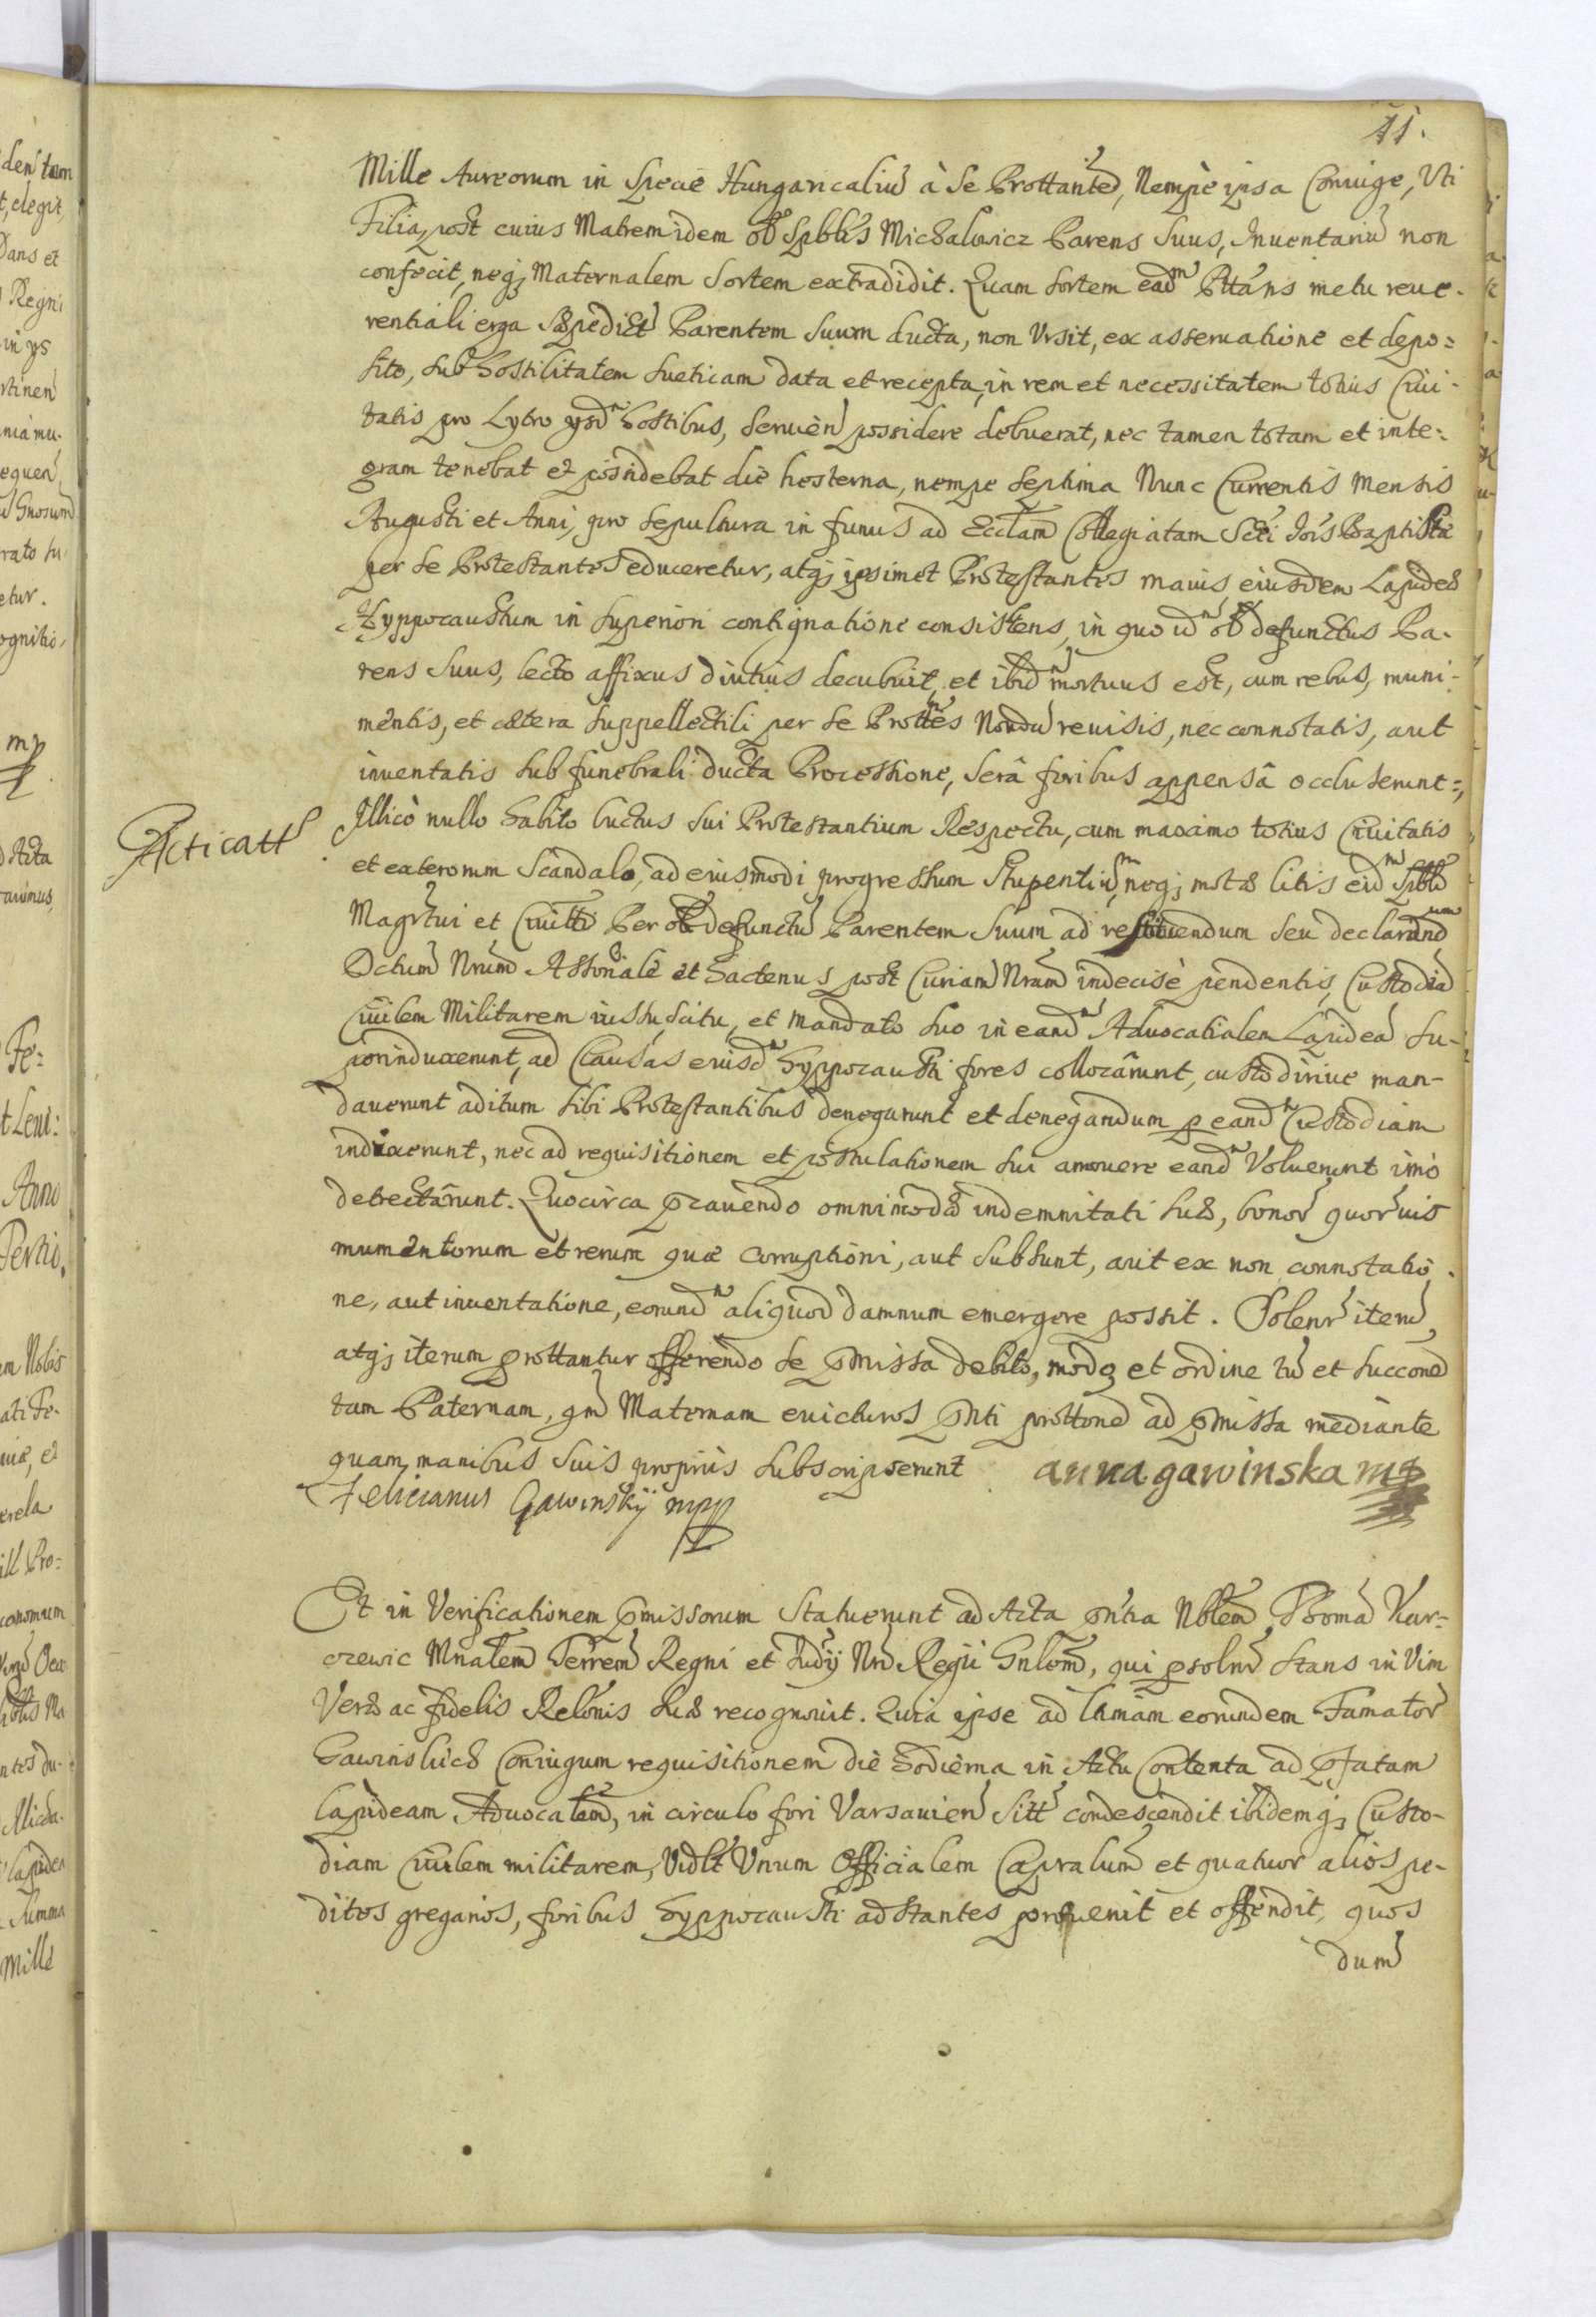 11.
Mille Aureorum in Specie Hungaricaliũ à se Prottantes, Nempè ipsa Coniuge, Uti
Filia, post cuius Matrem idem olĩ Spblis Michalowicz Parens suus, Inuentariũ non
confecit, neq; Maternalem Sortem extradidit. Quam sortem eadm Pttans metu reue-
rentiali erga Sæpedictũ Parentem suum ducta, non Vrsit, ex asseruatione et depo=
sito, sub hostilitatem sueticam data et recepta, in rem et necessitatem totius Ciui-
tatis pro Lytro ysdm hostibus, seruien possidere debuerat, nec tamen totam et inte=
gram tenebat et possidebat die hesterna, nempe septima Nunc Currentis Mensis
Augusti et Anni, pro sepultura in funus ad Ecclam Collegiatam Scti Jois Baptistæ
per se Protestantes educeretur, atq; ipsimet Protestantes maius eiusdem Lapideæ
Hyppocaustum in superiori contignatione consistens, in quo idm olĩ defunctus Pa-
rens suus, lecto affixus diutius decubuit, et ibidm mortuus est, cum rebus, muni-
mentis, et cætera suppellectili per se Prottes Nondũ reuisis, nec connotatis, aut
inuentatis sub funebrali ducta Processione, serâ foribus appensâ occluserunt=,
Acticatt
Illicò nullo habito luctus sui Protestantium Respectu, cum maximo totius Ciuitatis
et exterorum Scandalo, ad eiusmodi progressum Stupentium, neq; motæ litis eidm Spbli
Magrtui et Ciuitti Per olĩ defunctũ Parentem suum ad restituendum seu declarandum
Octum Nrum Assoriale et hactenus post Curiam Nram indecisè pendentis, Custodiã
Ciuilem Militarem iussu, scitu, et mandato suo in eandm Aduocatialem Lapideã su-
perinduxerunt, ad Clausas eiusdm Hyppocausti fores collocârunt, custodirive man-
dauerunt aditum sibi Protestantibus denegarunt et denegandum p eandm Custodiam
indixerunt, nec ad requisitionem et postulationem sui amouere eandm Voluerunt imò
detrectârunt. Quocirca pcauendo omnimodæ indemnitati suæ, bonor quorvis
mumentorum et rerum quæ corruptioni, aut subsunt, aut ex non connotatio-
ne, aut inuentatione, eorundm aliquod damnum emergere possit. Solenr iterũ,
atq; iterum prottantur offerendo se pmissa debito, modo et ordine tũ et succoned
tam Paternam, qm Maternam euicturos pnti prottone ad pmissa mediante
quam manibus suis proprijs subscripserunt anna gawinska mp
Felicianus Gawinskÿ mpp
Et in Verificationem pmissorum statuerunt ad Acta pntia Nblem Thomã Kur-
czewic Mnalem Terrem Regni et Judij Nri Regii Gnlem, qui psolnr stans in Vim
Veræ ac fidelis Relonis suæ recognouit. Quia ipse ad lrmam eorundem Famator
Gawinsciæ Coniugum requisitionem die hodierna in Actu Contenta ad pfatam
lapideam Aduocalem, in circulo fori Varsauien sitt condescendit ibidemq; Custo-
diam Ciuilem militarem, Vidlt Vnum Officialem Capralum et quatuor alios pe-
dites gregarios, foribus Hyppocausti adstantes peruenit et offendit, quos
dum